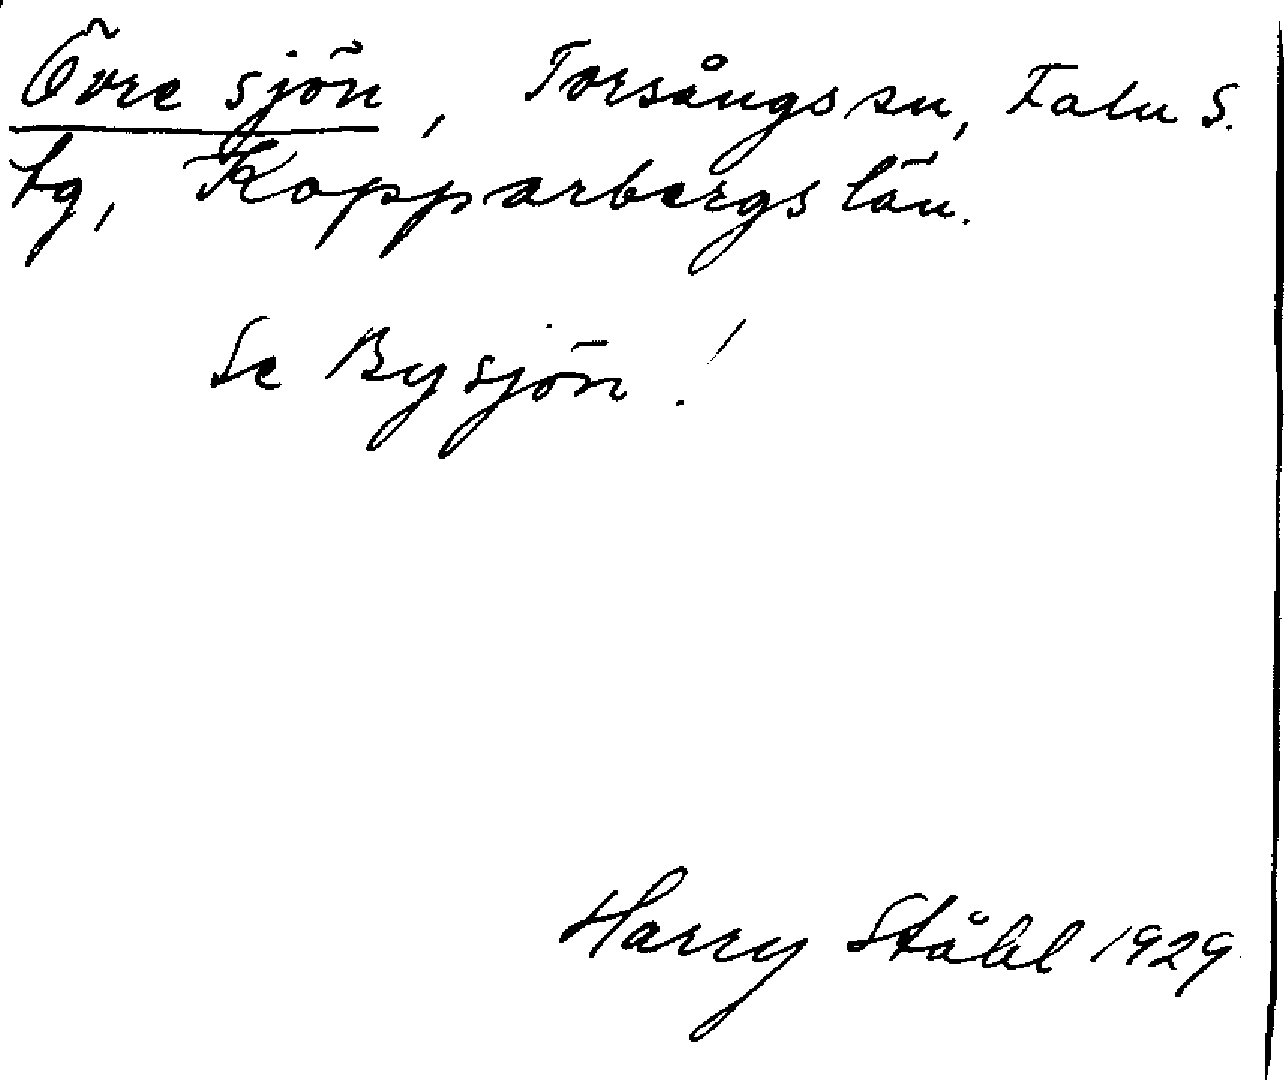 Övre sjön, Torsångs sn, Falu S.
tg, Kopparbergs län.
Se Bysjön!
Harry Ståhl 1929